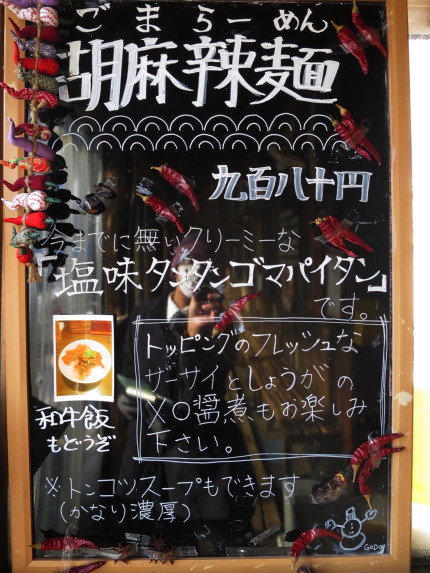 ごまらーめん
胡麻辣麺
九百八十円
今までに無いクリーミーな
「塩味タンタンゴマパイタン」
です。
トッピングのフレッシュな
ザーサイとしょうがの
XO醤煮もお楽しみ
下さい。
和牛飯
もどうぞ
※トンコツスープもできます
(かなり濃厚)
GoDo